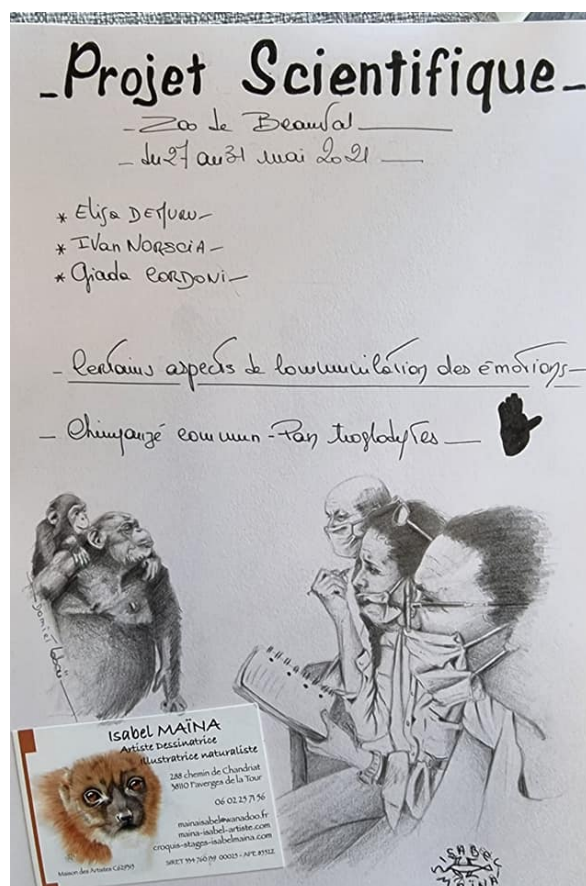 _Projet Scientifique_
_ Zoo de Beauval _
_ du 27 au 31 mai 2021 _
* Elisa DEMURU_
* Ivan NORSCIA_
* Giada CORDONI_
_ Certains aspects de communication des émotions_
_ Chimpanzé commun - Pan troglodytes _
Isabel MAÏNA
Artiste Dessinatrice
Illustratrice naturaliste
288 chemin de Chandriat
38110 Faverges de la Tour
06 02 25 71 56
mainaisabel@wanadoo.fr
maina-isabel-artiste.com
croquis-stages-isabelmaina.com
Maison des Artistes
SIRET
ISABEL
MAÏNA